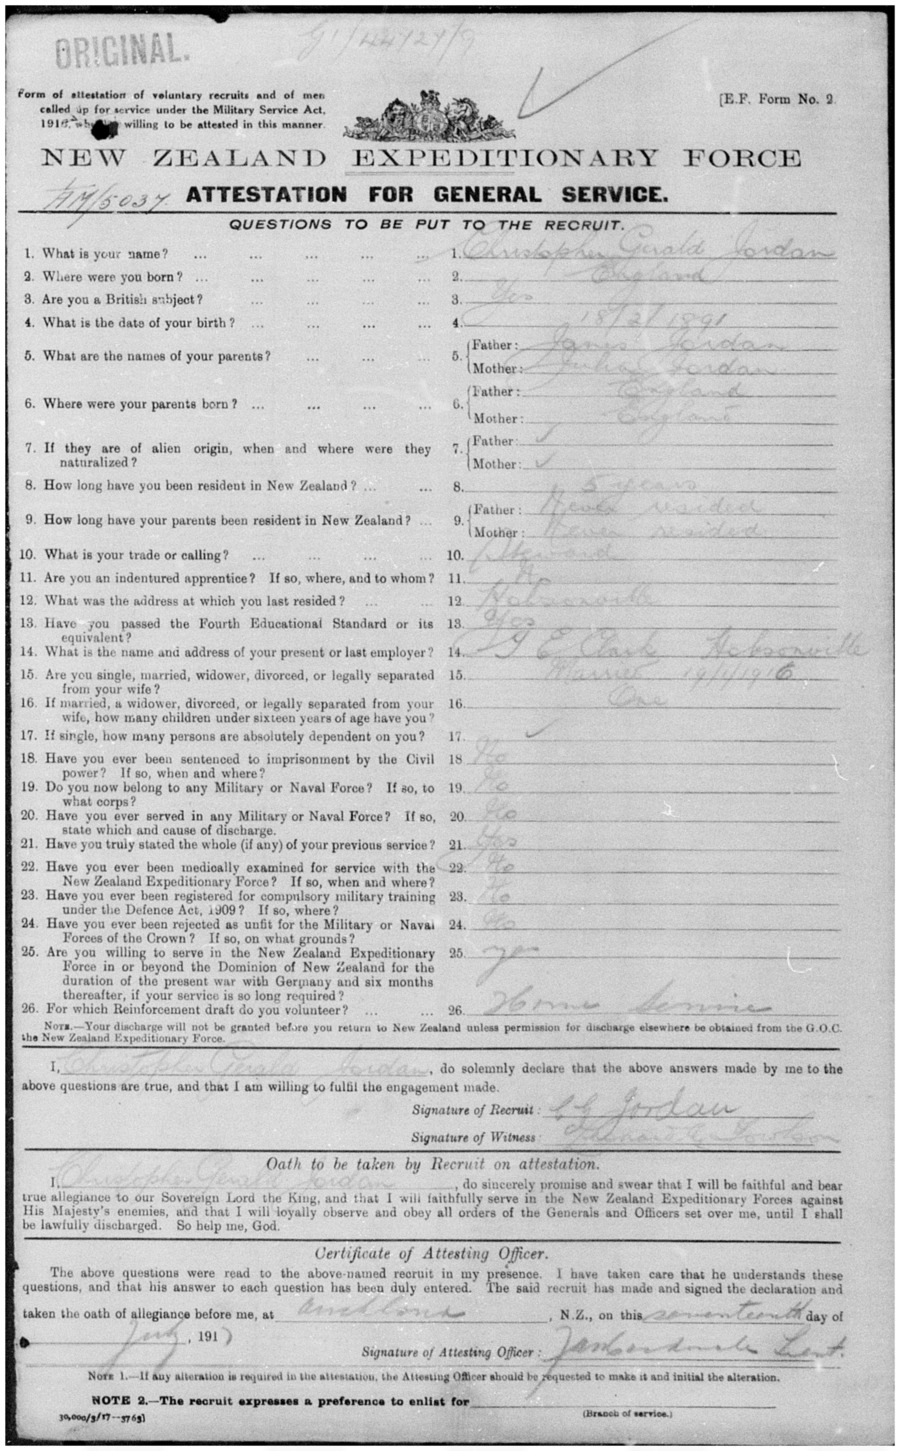 ORIGINAL.
Form of attestation of voluntary recruits and of men
[E.F. Form No. 2.
called up for service under the Military Service Act,
willing to be attested in this manner.
NEW ZEALAND EXPEDITIONARY FORCE
ATTESTATION FOR GENERAL SERVICE.
QUESTIONS TO BE PUT TO THE RECRUIT.
1. What is your name? ... ... ... ... 1. Christopher Gerald Jordan
2. Where were you born? ... ... ... ... 2. England
3. Are you a British subject? ... ... ... 3. Yes
4. What is the date of your birth? ... ... ... 4. 18/2/1891
5. What are the names of your parents? ... ... 5. Father: James Jordan
Mother: Julia Jordan
6. Where were your parents born? ... ... ... 6. Father: England
Mother: England
7. If they are of alien origin, when and where were they 7. Father: ✓
naturalized? Mother: ✓
8. How long have you been resident in New Zealand? ... ... 8. 5 years
9. How long have your parents been resident in New Zealand? ... 9. Father: Never resided
Mother: Never resided
10. What is your trade or calling? ... ... ... ... 10. Steward
11. Are you an indentured apprentice? If so, where, and to whom? 11.
12. What was the address at which you last resided? ... ... 12 Hobsonville
13. Have you passed the Fourth Educational Standard or its 13. Yes
equivalent?
14. What is the name and address of your present or last employer? 14. E Clark Hobsonville
15. Are you single, married, widower, divorced, or legally separated 15. Married 19/1/1916
from your wife?
16. If married, a widower, divorced, or legally separated from your 16. One
wife, how many children under sixteen years of age have you?
17. If single, how many persons are absolutely dependent on you? 17. ✓
18. Have you ever been sentenced to imprisonment by the Civil 18 No
power? If so, when and where?
19. Do you now belong to any Military or Naval Force? If so, to 19. No
what corps?
20. Have you ever served in any Military or Naval Force? If so, 20. No
state which and cause of discharge.
21. Have you truly stated the whole (if any) of your previous service? 21. Yes
22. Have you ever been medically examined for service with the 22. No
New Zealand Expeditionary Force? If so, when and where?
23. Have you ever been registered for compulsory military training 23. No
under the Defence Act, 1909? If so, where?
24. Have you ever been rejected as unfit for the Military or Naval 24. No
Forces of the Crown? If so, on what grounds?
25. Are you willing to serve in the New Zealand Expeditionary 25. yes
Force in or beyond the Dominion of New Zealand for the
duration of the present war with Germany and six months
thereafter, if your service is so long required?
26. For which Reinforcement draft do you volunteer? ... ... 26. Home Service
NOTE.—Your discharge will not be granted before you return to New Zealand unless permission for discharge elsewhere be obtained from the G.O.C.
the New Zealand Expeditionary Force.
I, Christopher Gerald Jordan, do solemnly declare that the above answers made by me to the
above questions are true, and that I am willing to fulfil the engagement made.
Signature of Recruit: C G Jordan
Signature of Witness:
Oath to be taken by Recruit on attestation.
I, Christopher Gerald Jordan, do sincerely promise and swear that I will be faithful and bear
true allegiance to our Sovereign Lord the King, and that I will faithfully serve in the New Zealand Expeditionary Forces against
His Majesty's enemies, and that I will loyally observe and obey all orders of the Generals and Officers set over me, until I shall
be lawfully discharged. So help me, God.
Certificate of Attesting Officer.
The above questions were read to the above-named recruit in my presence. I have taken care that he understands these
questions, and that his answer to each question has been duly entered. The said recruit has made and signed the declaration and
taken the oath of allegiance before me, at Auckland, N.Z., on this seventeenth day of
July, 1917
Signature of Attesting Officer: Lieut.
NOTE 1.—If any alteration is required in the attestation, the Attesting Officer should be requested to make it and initial the alteration.
NOTE 2.—The recruit expresses a preference to enlist for
(Branch of service.)
30,000/3/17—3763]